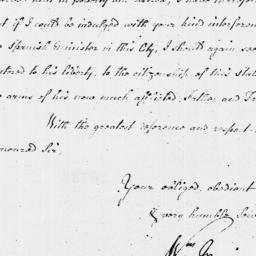 t if I could be indulged with your kind interferen
Spanish Minister in this City, I should again soo
tored to his liberty, to the citizenship of this State
arms of his now much afflicted Father and Fr
With the greatest reverence and respect.
onoured Sir,
Your obliged, obedient
& very humble Ser
Wm